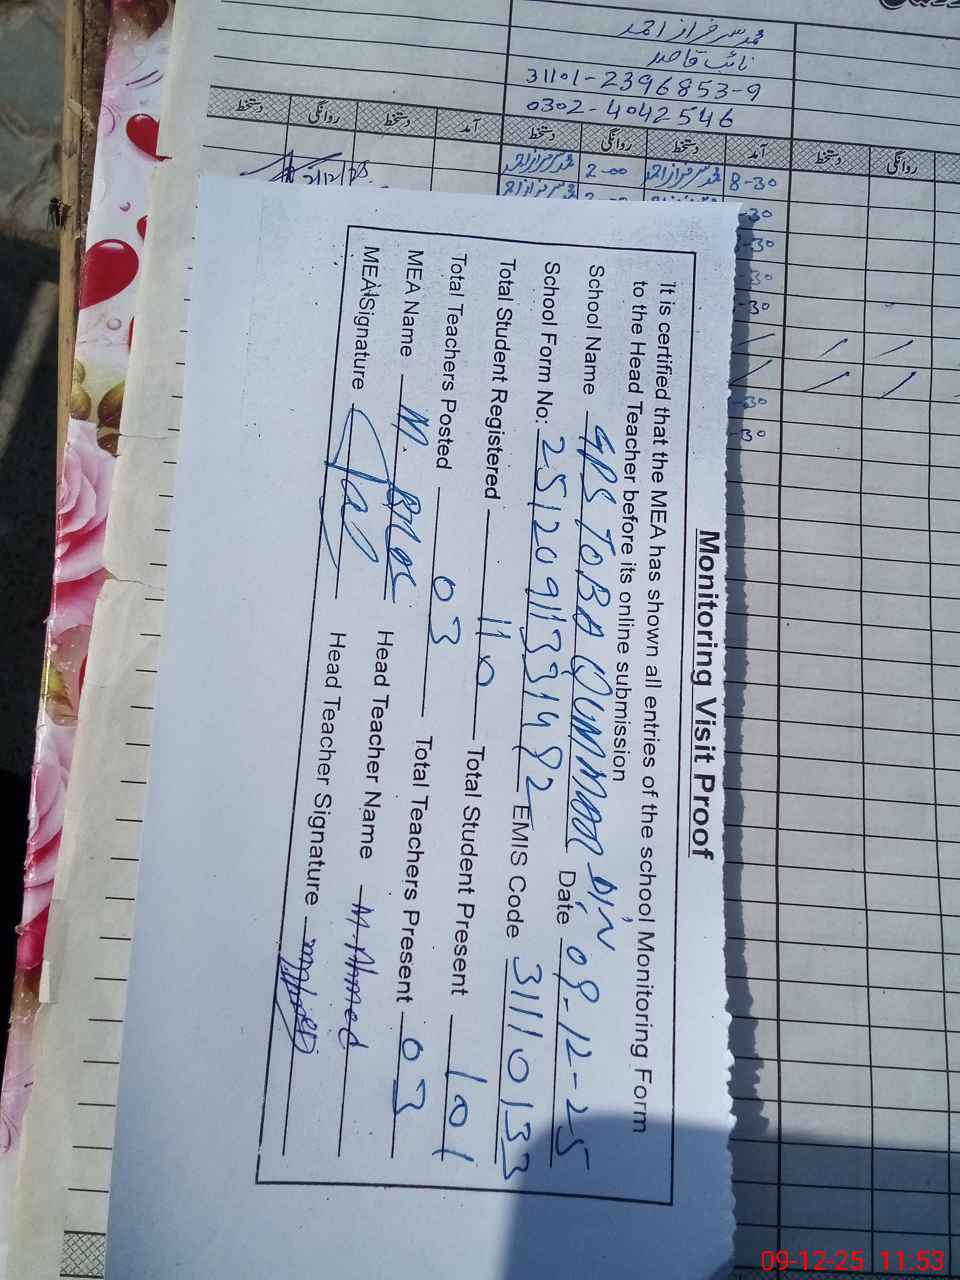 محمد سرفراز احمد
نائب قاصد
31101-2396853-9
0302-4042546
دستخط روانگی دستخط آمد دستخط روانگی دستخط آمد دستخط روانگی
محمد سرفراز احمد 2-00 محمد سرفراز احمد 8-30
Monitoring Visit Proof
It is certified that the MEA has shown all entries of the school Monitoring Form
to the Head Teacher before its online submission
School Name GPS TOBA QUMMAR DIN Date 09-12-25
School Form No: 25120911331492 EMIS Code 31110133
Total Student Registered 110 Total Student Present 101
Total Teachers Posted 03 Total Teachers Present 03
MEA Name M. Head Teacher Name M. Ahmed
MEA Signature Head Teacher Signature
09-12-25 11.53